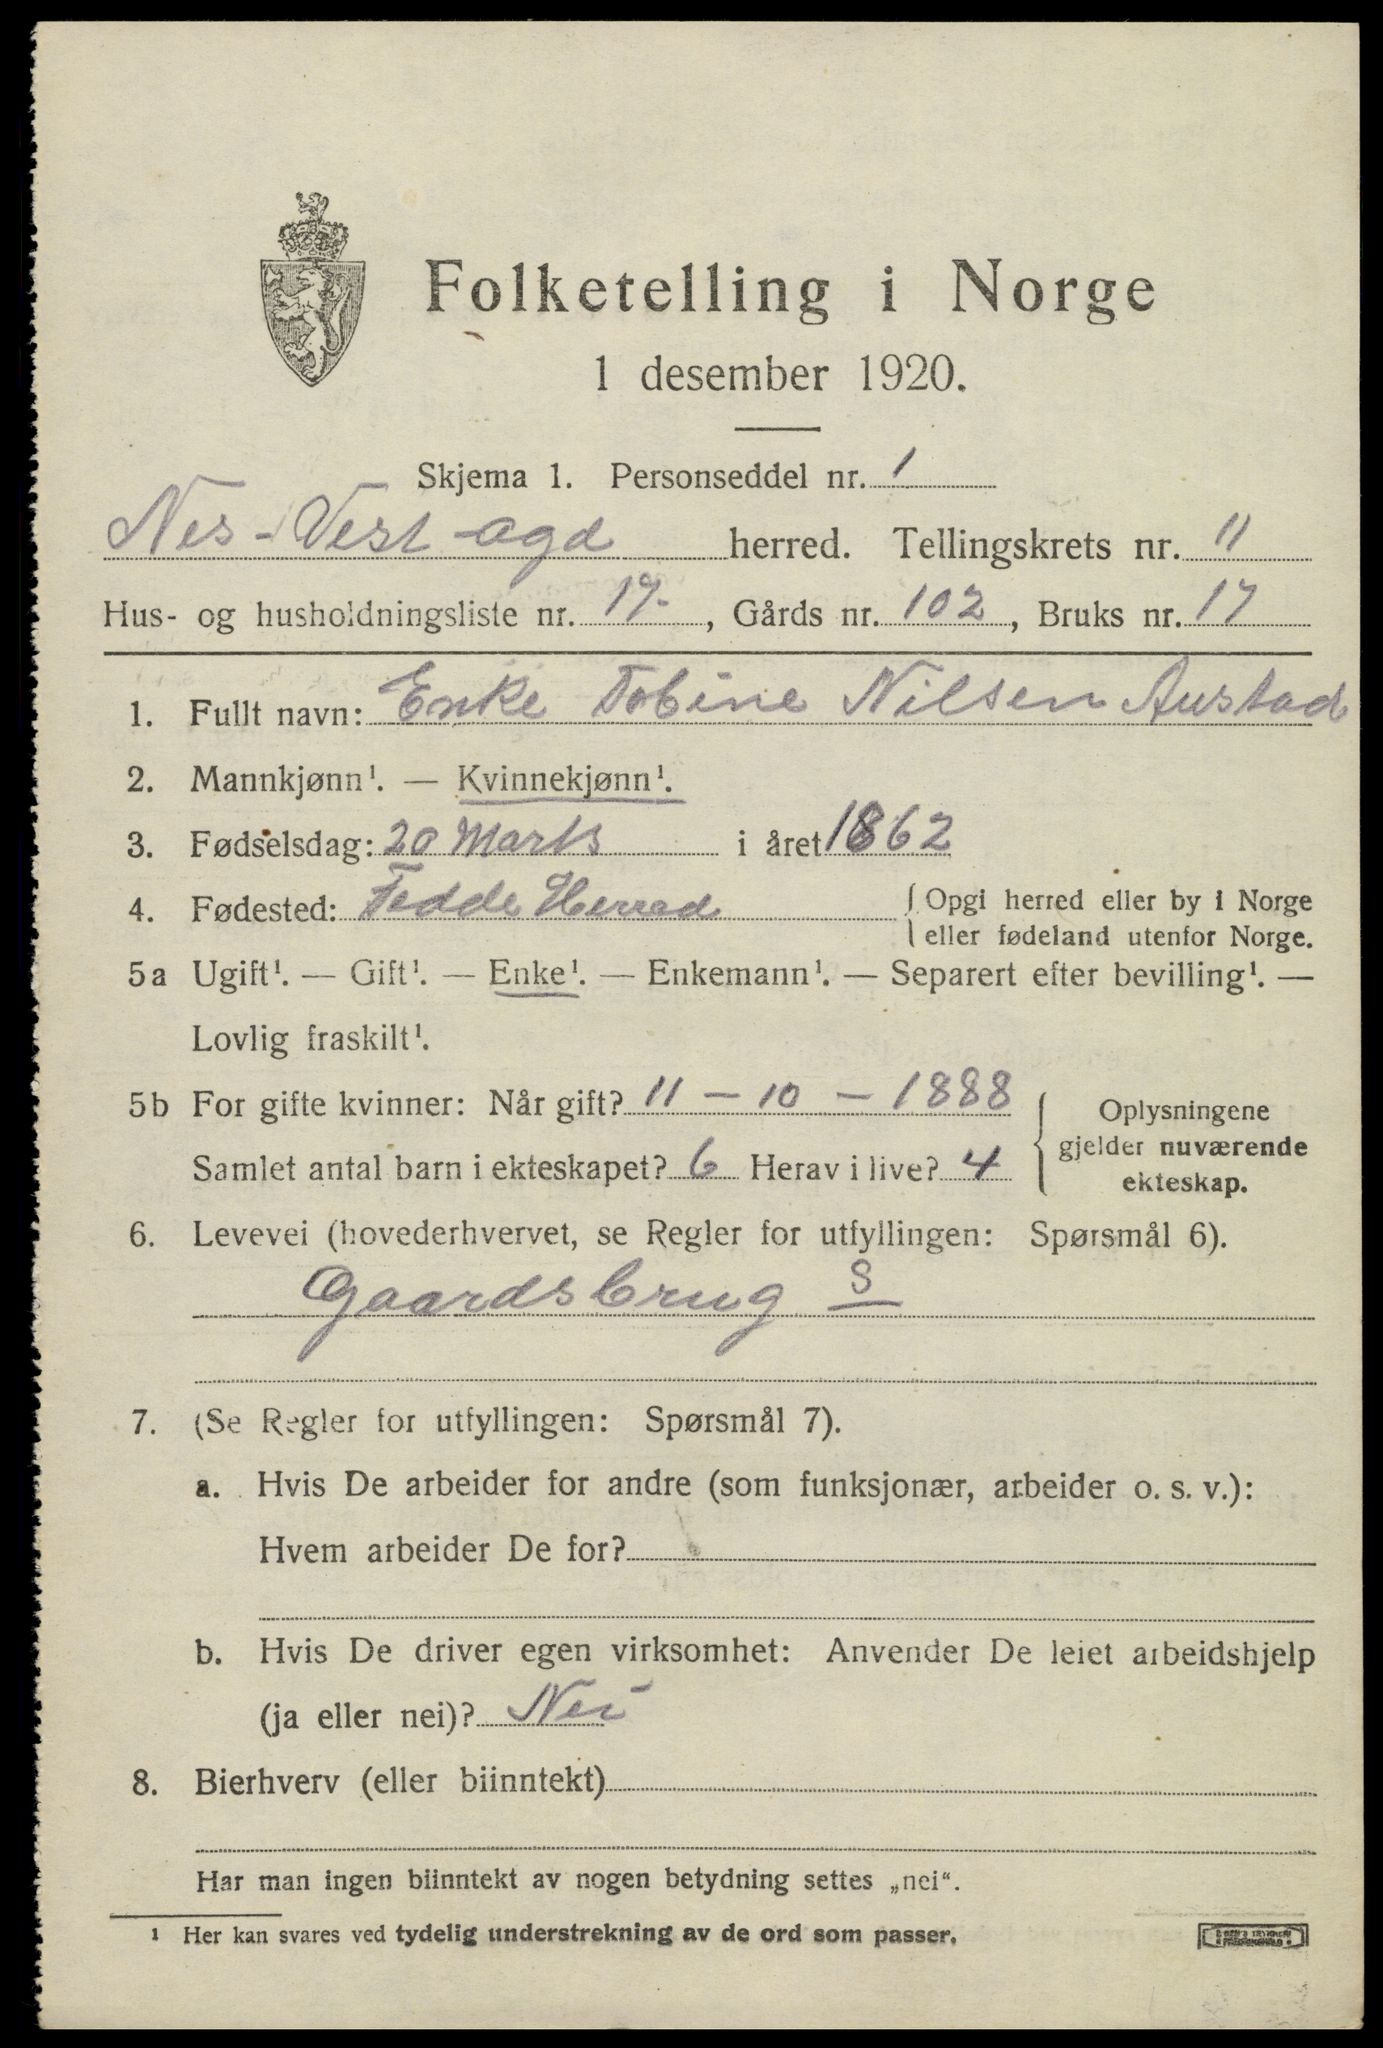 Folketelling i Norge
1 desember 1920.
Skjema 1. Personseddel nr. 1
Nes - Vest-agd herred. Tellingskrets nr. 11
Hus- og husholdningsliste nr. 19. , Gårds nr. 102 , Bruks nr. 17
1. Fullt navn: Enke Tobine Nilsen Austad
2. Mannkjønn¹. — Kvinnekjønn¹.
3. Fødselsdag: 20 Marts i året 1862
4. Fødested: Fedde Herred { Opgi herred eller by i Norge
eller fødeland utenfor Norge.
5a Ugift¹. — Gift¹. — Enke¹. — Enkemann¹. — Separert efter bevilling¹. —
Lovlig fraskilt¹.
5b For gifte kvinner: Når gift? 11 — 10 — 1888
Samlet antal barn i ekteskapet? 6 Herav i live? 4
Oplysningene
gjelder nuværende
ekteskap.
6. Levevei (hovederhvervet, se Regler for utfyllingen: Spørsmål 6).
Gaardsbrug S
7. (Se Regler for utfyllingen: Spørsmål 7).
a. Hvis De arbeider for andre (som funksjonær, arbeider o. s. v.):
Hvem arbeider De for?
b. Hvis De driver egen virksomhet: Anvender De leiet arbeidshjelp
(ja eller nei)? Nei
8. Bierhverv (eller biinntekt)
Har man ingen biinntekt av nogen betydning settes „nei“.
¹ Her kan svares ved tydelig understrekning av de ord som passer.